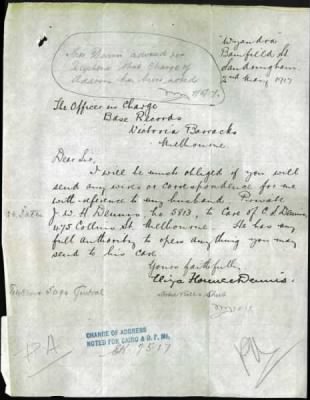 "Wyandra"
Bamfield St
Sandringham
2nd May 1917
Mrs Dennis advised on
telephone that Change of
Address has been noted
The Officer in Charge
Base Records
Victoria Barracks
Melbourne
Dear Sir,
I will be much obliged if you will
send any wires or correspondence for me
with reference to my husband Private
J. W. H Dennis, No 5813, to Care of C S Dennis
475 Collins St. Melbourne. He has any
full authority to open anything you may
send to his care
Yours faithfully,
Eliza Dennis.
CHANGE OF ADDRESS
NOTED FOR CAIRO & D. P. M.
7 5 17